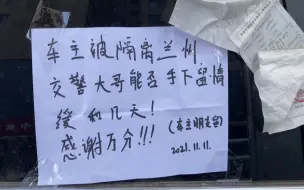 车主被隔离兰州
交警大哥能否手下留情
缓和几天！
感谢万分!!!
(车主明先留)
2021.11.11.